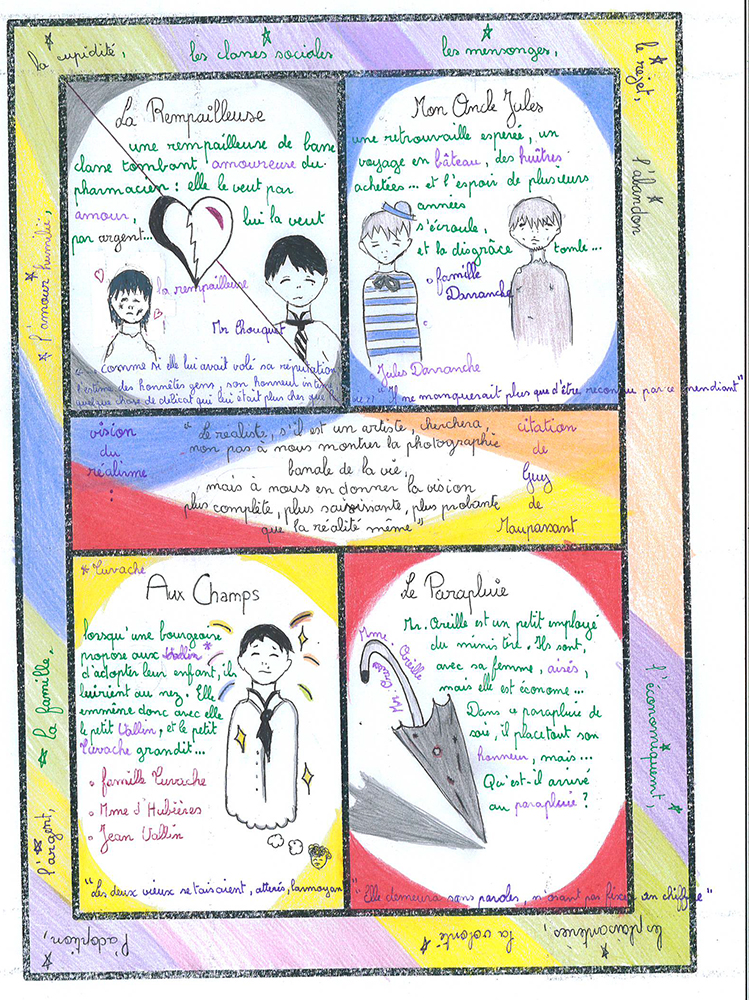 la cupidité,
les classes sociales
les mensonges,
le rejet,
l'abandon
l'économiquement,
les plaisanteries,
la volonté
l'adoption,
l'argent,
la famille,
l'amour humilié,
La Rempailleuse
une rempailleuse de basse
classe tombant amoureuse du
pharmacien : elle le veut par
amour, lui la veut
par argent...
la rempailleuse
Mr Chouquet
comme si elle lui avait volé sa réputation
l'estime des honnêtes gens, son honneur
quelque chose de délicat qui lui était plus cher que
Mon Oncle Jules
une retrouvaille espérée, un
voyage en bâteau, des huîtres
achetées... et l'espoir de plusieurs
années
s'écroule,
et la disgrâce
tombe...
famille
Darranche
Jules Darranche
"Il me manquerait plus que d'être reconnu par ce mendiant"
vision
du
réalisme
:
"Le réaliste, s'il est un artiste, cherchera,
non pas à nous montrer la photographie
banale de la vie,
mais à nous en donner la vision
plus complète, plus saisissante, plus probante
que la réalité même"
citation
de
Guy
de
Maupassant
* Tuvache
Aux Champs
lorsqu'une bourgeoise
propose aux Vallin *
d'adopter leur enfant, ils
lui rient au nez. Elle
emmène donc avec elle
le petit Vallin, et le petit
Tuvache grandit...
famille Tuvache
Mme d'Hubières
Jean Vallin
"Les deux vieux se taisaient, atterés, larmoyan
Le Parapluie
Mr. Oreille est un petit employé
du ministère. Ils sont,
avec sa femme, aisés,
mais elle est économe...
Dans ce parapluie de
soie, il place tout son
honneur, mais...
Qu'est-il arrivé
au parapluie ?
Mme. Oreille
Mr. Oreille
"Elle demeura sans paroles, n'osant pas fixer un chiffre"